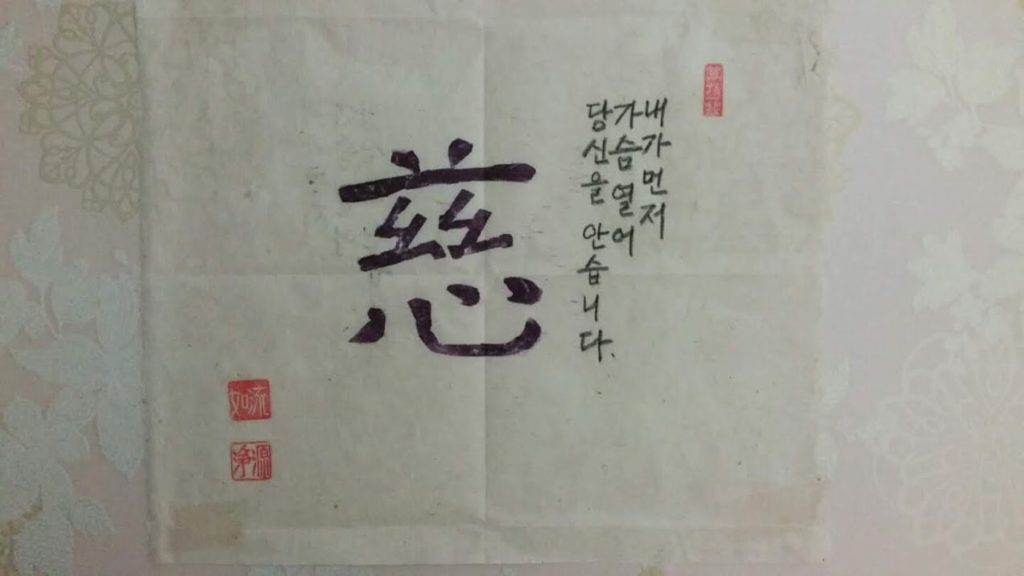 내가먼저
가슴열어
당신을 안습니다.
慈
如流
淨源